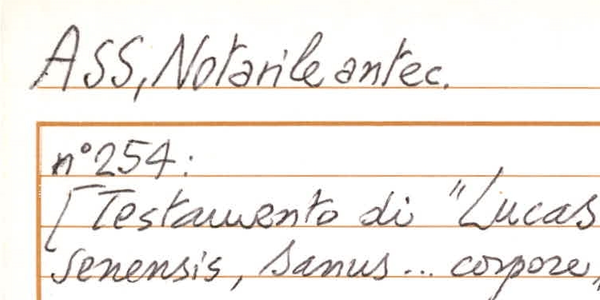 ASS, Notarile antec.
n° 254:
[Testamento di "Lucas
senensis, sanus... corpore,